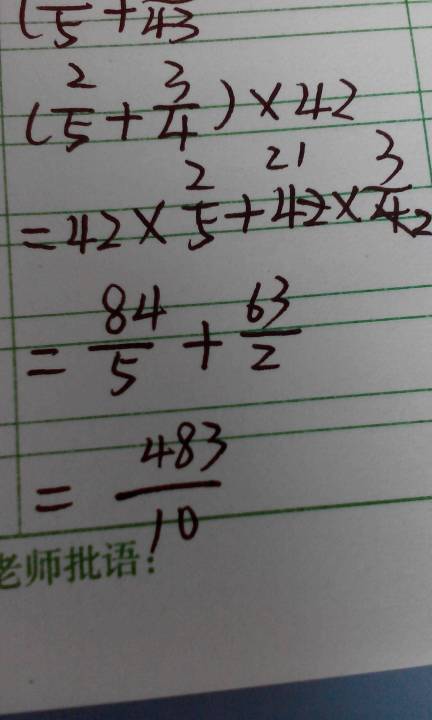 (2/5 + 3/4) × 42
= 42 × 2/5 + 42 21 × 3/4 2
= 84/5 + 63/2
= 483/10
老师批语: